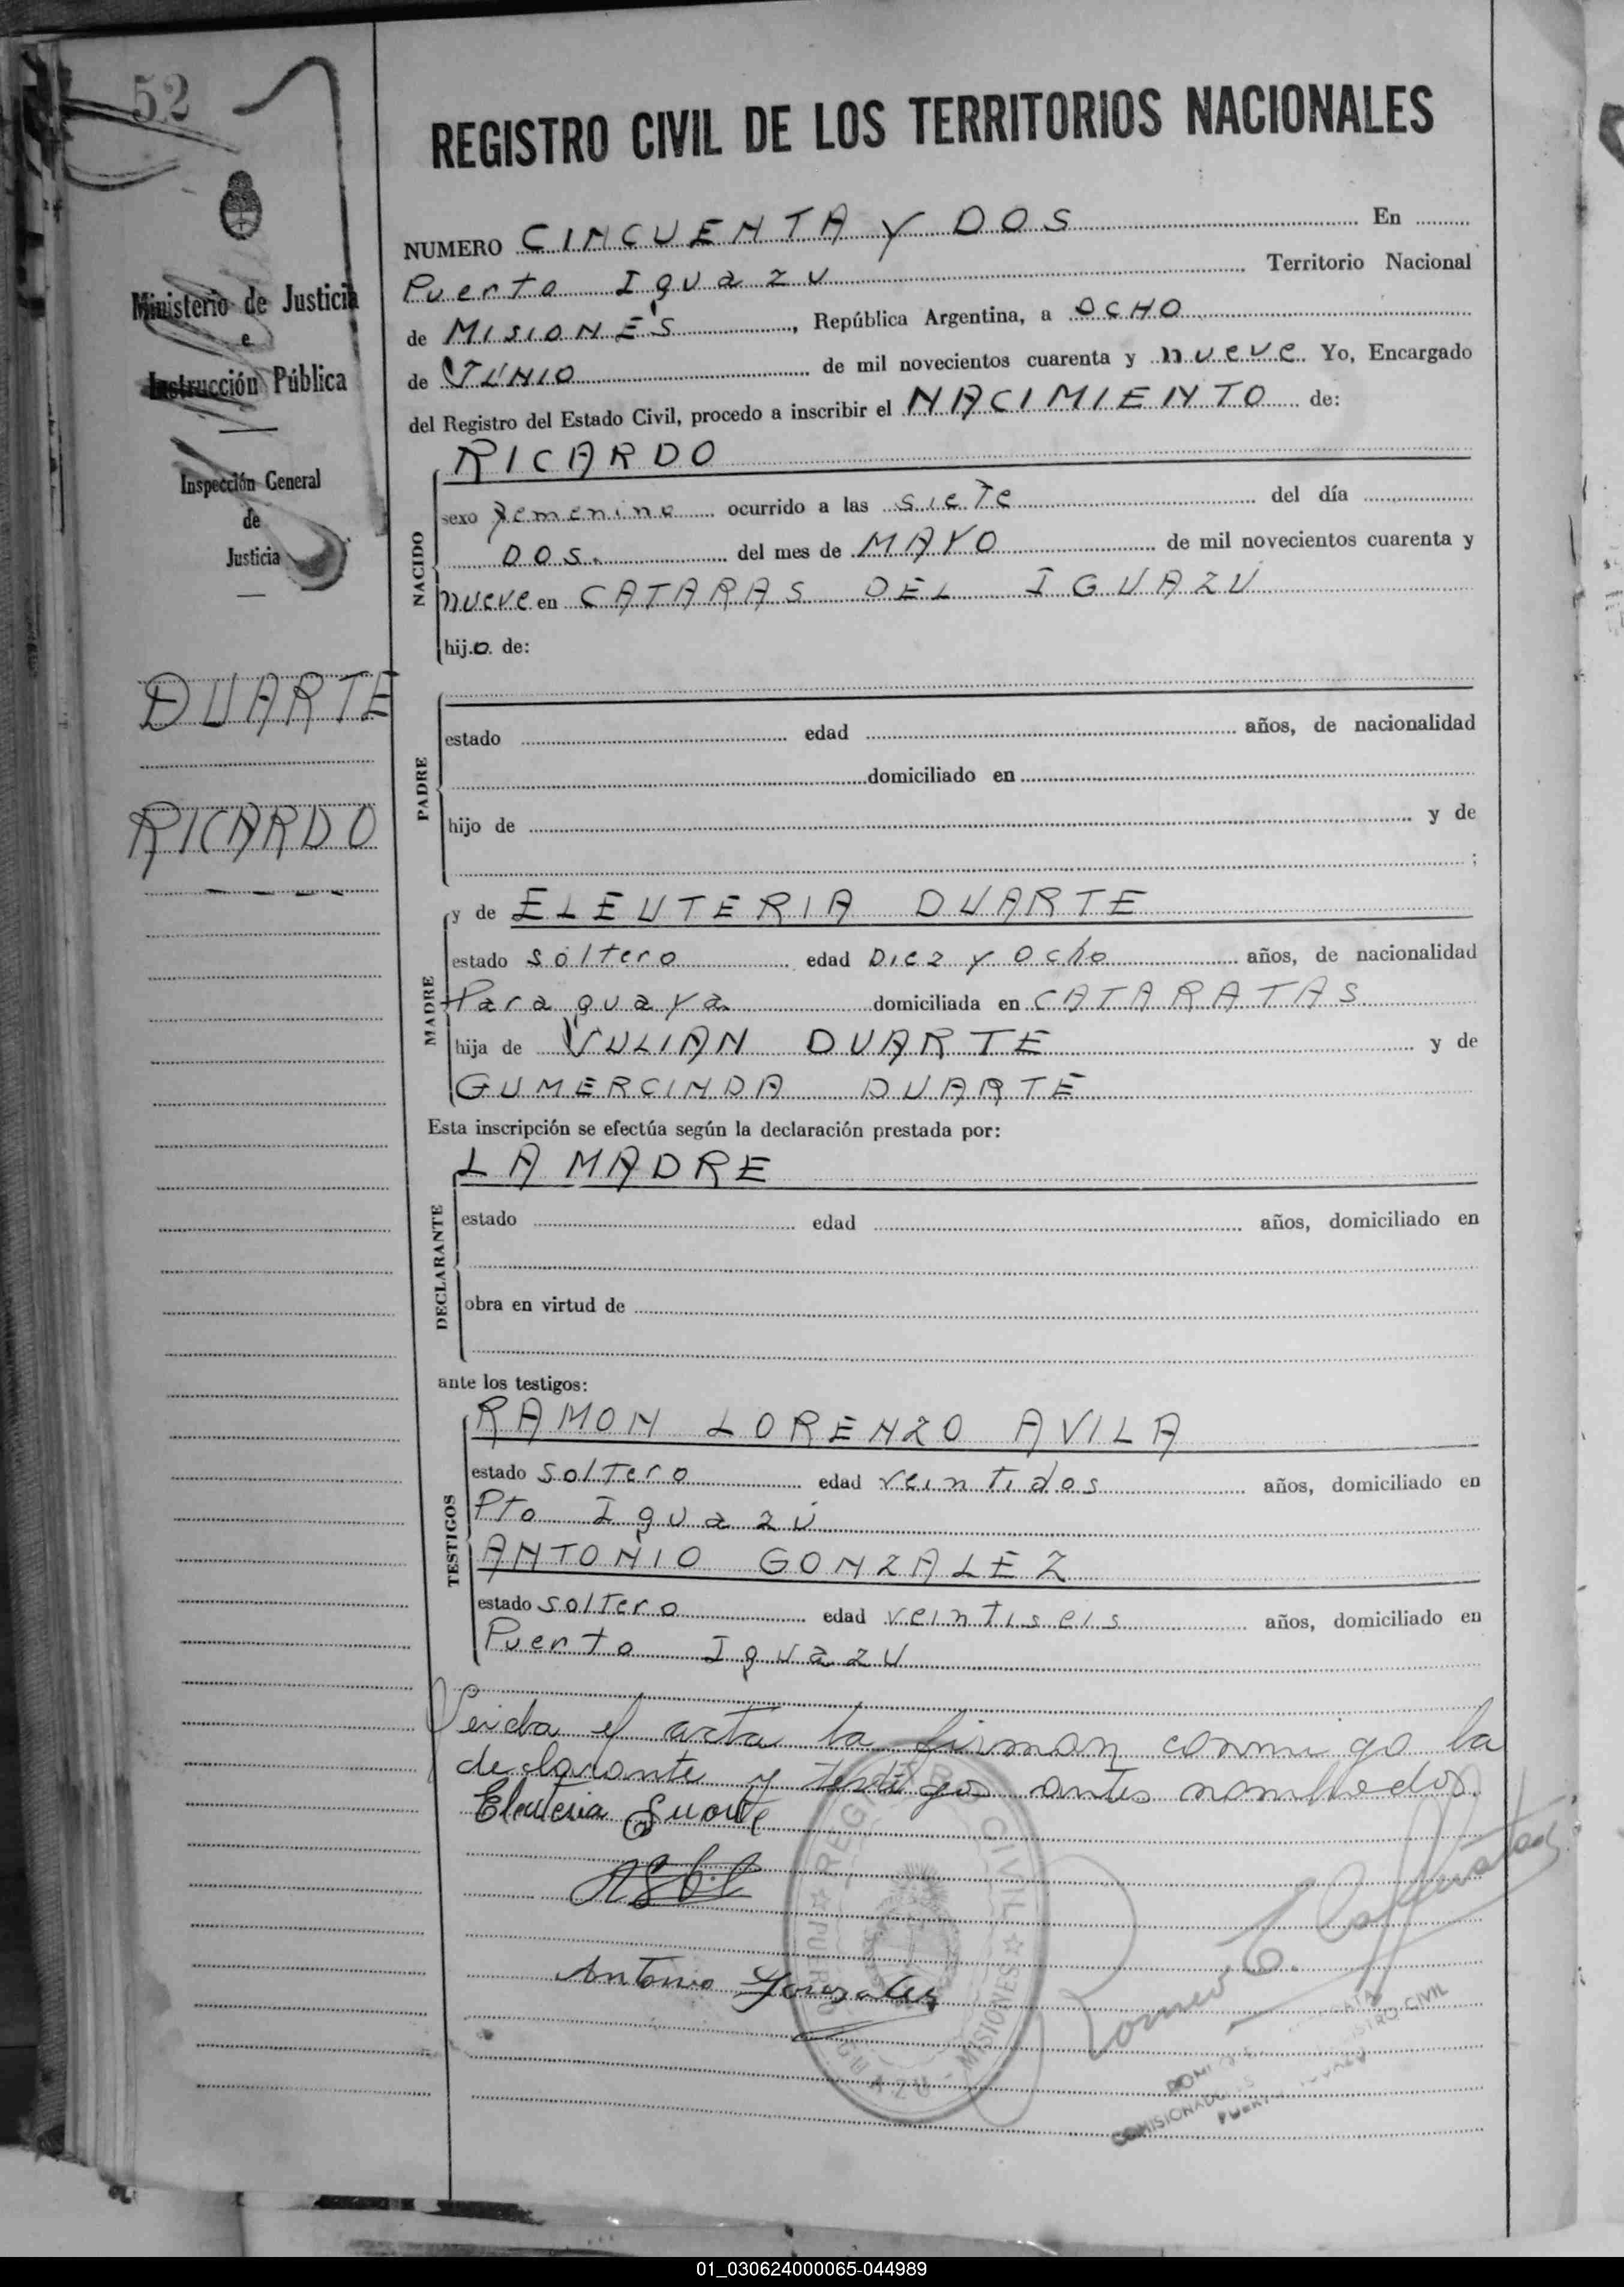 52
Ministerio de Justicia
e
Instrucción Pública
Inspección General
de
Justicia
DUARTE
RICARDO
REGISTRO CIVIL DE LOS TERRITORIOS NACIONALES
NUMERO CINCUENTA Y DOS En
Puerto Iguazu Territorio Nacional
de MISIONES, República Argentina, a OCHO
de JUNIO de mil novecientos cuarenta y nueve. Yo, Encargado
del Registro del Estado Civil, procedo a inscribir el NACIMIENTO de:
NACIDO
RICARDO
sexo femenino ocurrido a las siete del día
DOS. del mes de MAYO de mil novecientos cuarenta y
nueve en CATARAS DEL IGUAZU
hijo de:
PADRE
estado edad años, de nacionalidad
domiciliado en
hijo de y de
;
MADRE
y de ELEUTERIA DUARTE
estado soltero edad Diez y Ocho años, de nacionalidad
Paraguaya domiciliada en CATARATAS
hija de JULIAN DUARTE y de
GUMERCINDA DUARTE
Esta inscripción se efectúa según la declaración prestada por:
DECLARANTE
LA MADRE
estado edad años, domiciliado en
obra en virtud de
ante los testigos:
TESTIGOS
RAMON LORENZO AVILA
estado soltero edad veintidos años, domiciliado en
Pto Iguazú
ANTONIO GONZALEZ
estado soltero edad veintiseis años, domiciliado en
Puerto Iguazu
Leida el acta la firman conmigo la
declarante y testigos antes nombrados.
Eleuteria Duarte
Antonio Gonzalez
REGISTRO CIVIL
PUERTO IGUAZU - MISIONES
REGISTRO CIVIL
01_030624000065-044989